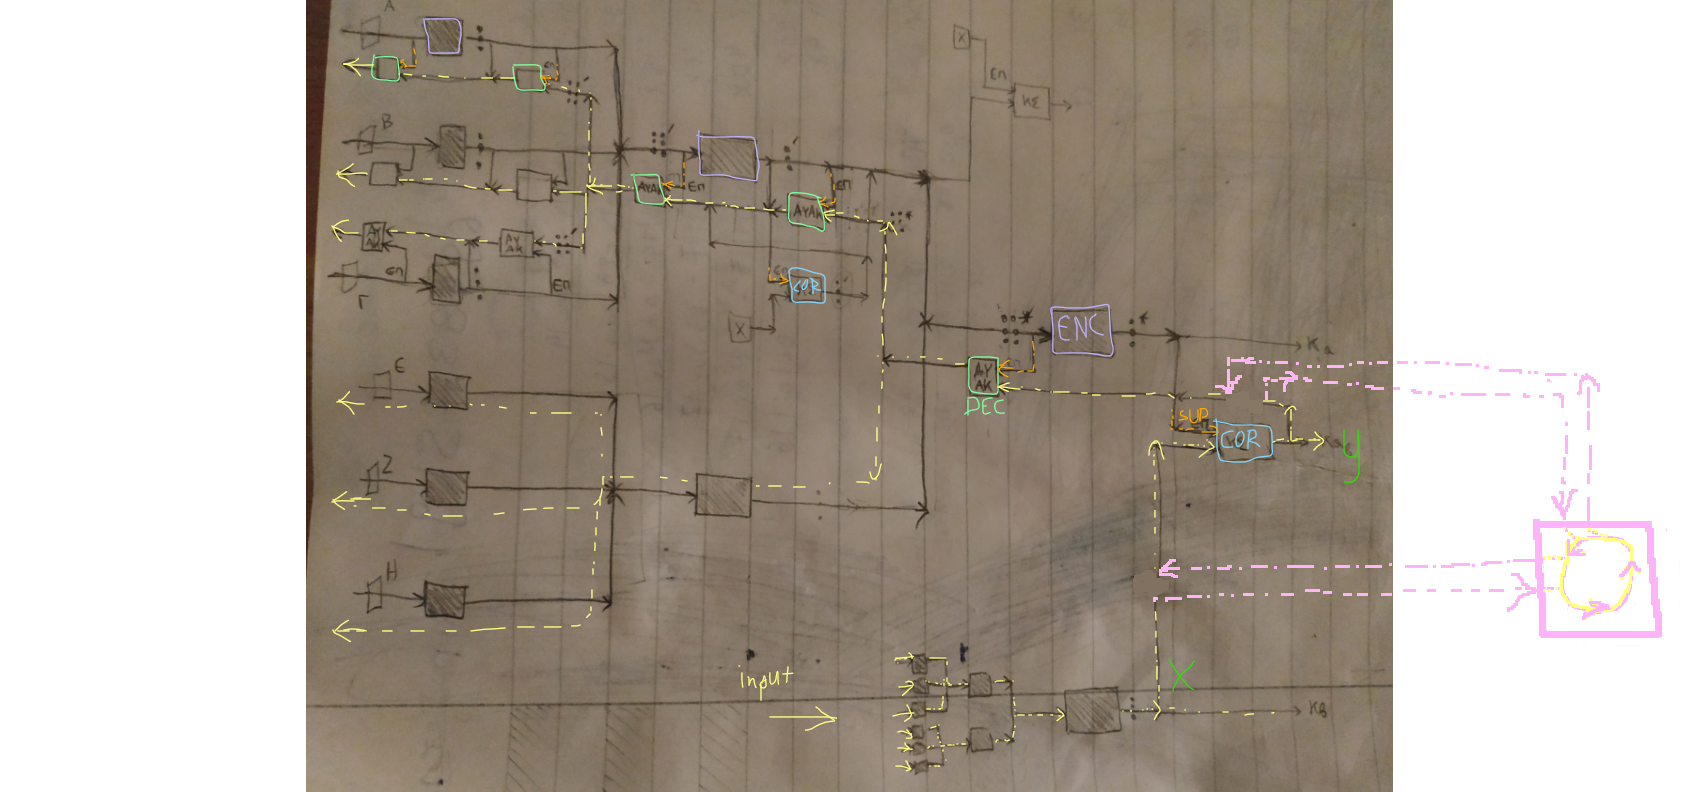 A
En
X
B
En
KE
En
AYAK
En
AYAK
AY
AK
AY
AK
En
En
Γ
En
COR
X
ENC
Ka
E
AY
AK
DEC
SUP
COR
y
Z
H
input
X
KB